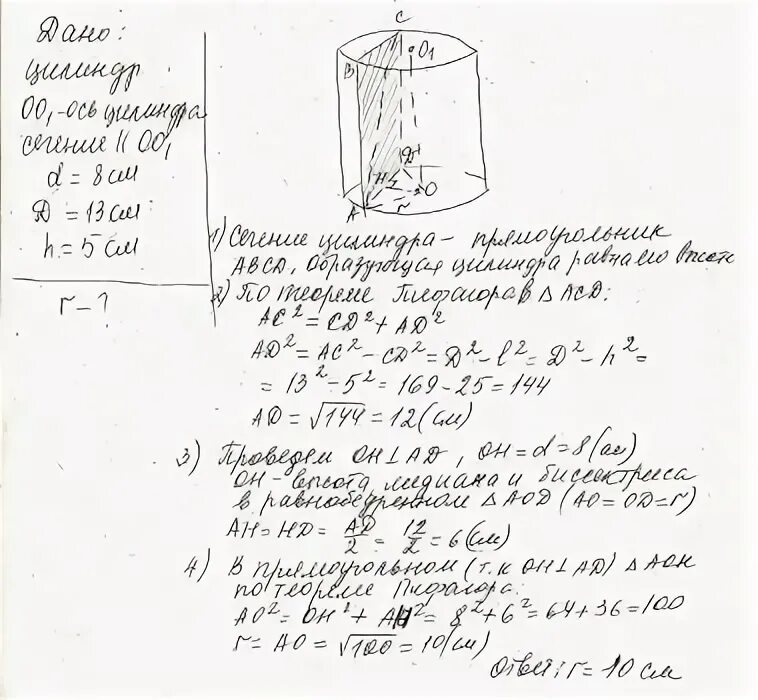 Дано:
цилиндр
OO₁-ось цилиндра
сечение || OO₁
d = 8 см
D = 13 см
h = 5 см
r - ?
C
O₁
B
H
D
O
A
r
1) Сечение цилиндра - прямоугольник
ABCD, образующая цилиндра равна его высоте
2) По теореме Пифагора в △ ACD:
AC² = CD² + AD²
AD² = AC² - CD² = D² - l² = D² - h² =
= 13² - 5² = 169 - 25 = 144
AD = √144 = 12 (см)
3) Проведем OH ⊥ AD, OH = d = 8 (см)
OH - высота, медиана и биссектриса
в равнобедренном △ AOD (AO = OD = r)
AH = HD = AD/2 = 12/2 = 6 (см)
4) В прямоугольном (т.к OH ⊥ AD) △ AOH
по теореме Пифагора:
AO² = OH² + AH² = 8² + 6² = 64 + 36 = 100
r = AO = √100 = 10 (см)
Ответ: r = 10 см